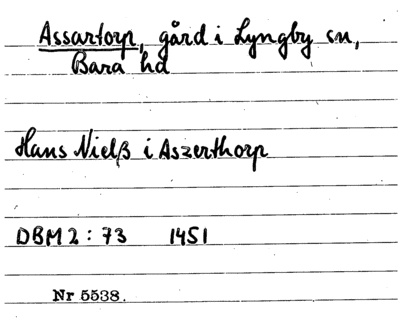 Assartorp, gård i Lyngby sn,
Bara hd
Hans Nielß i Aszerthorp
DBM 2 : 73 1451
Nr 5538.